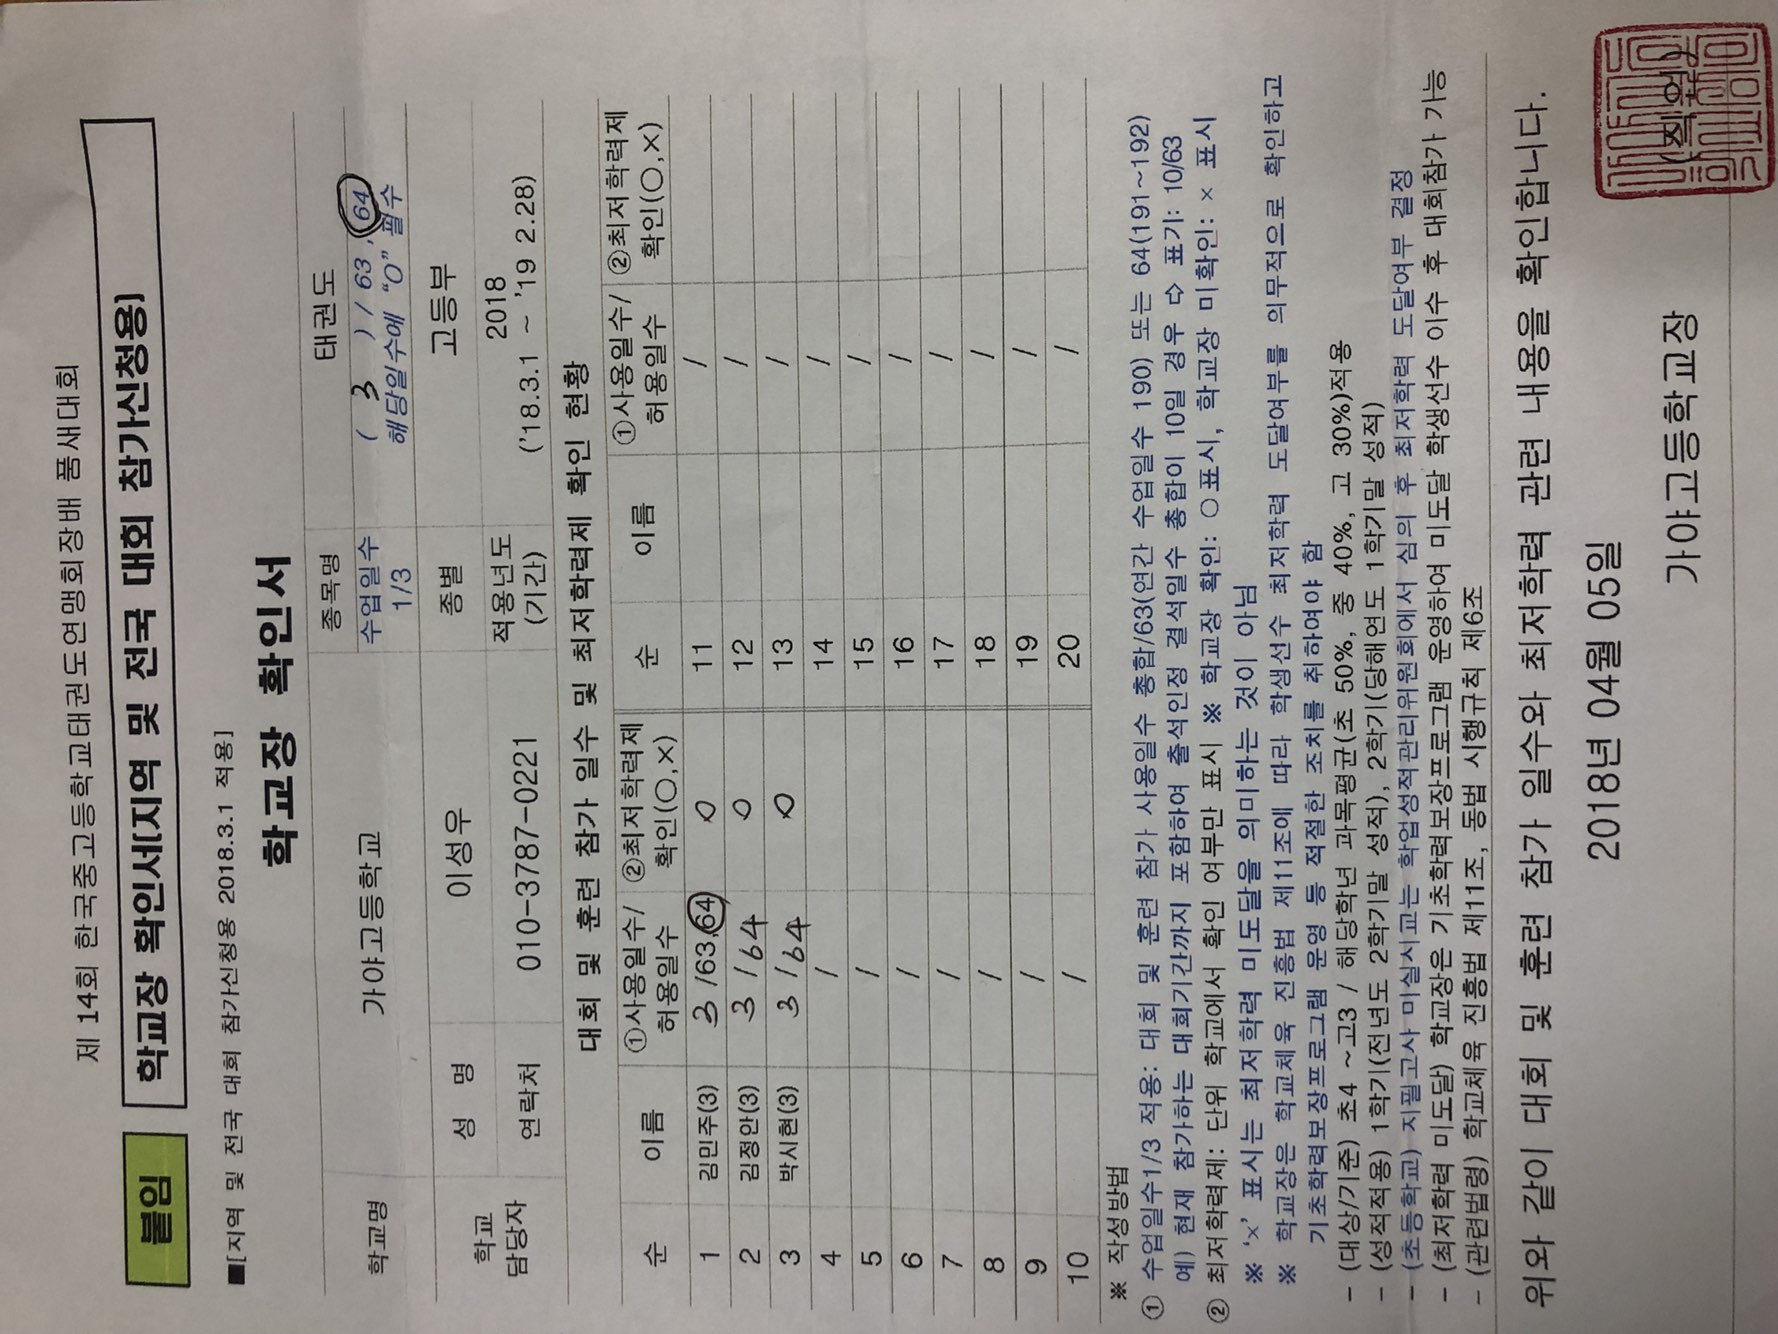 제 14회 한국중고등학교태권도연맹회장배 품새대회
붙임 학교장 확인서[지역 및 전국 대회 참가신청용]
■[지역 및 전국 대회 참가신청용 2018.3.1 적용]
학교장 확인서
학교명 가야고등학교 종목명 태권도
수업일수 1/3 ( 3 ) / 63, 64
해당일수에 "O" 필수
학교 담당자 성 명 이성우 종별 고등부
연락처 010-3787-0221 적용년도 (기간) 2018
('18.3.1 ~ '19 2.28)
대회 및 훈련 참가 일수 및 최저학력제 확인 현황
순 이름 ①사용일수/허용일수 ②최저학력제 확인(○,×) 순 이름 ①사용일수/허용일수 ②최저학력제 확인(○,×)
1 김민주(3) 3 /63,64 O 11 /
2 김정안(3) 3 /64 O 12 /
3 박시현(3) 3 /64 O 13 /
4 / 14 /
5 / 15 /
6 / 16 /
7 / 17 /
8 / 18 /
9 / 19 /
10 / 20 /
※ 작성방법
① 수업일수1/3 적용: 대회 및 훈련 참가 사용일수 총합/63(연간 수업일수 190) 또는 64(191~192)
예) 현재 참가하는 대회기간까지 포함하여 출석인정 결석일수 총합이 10일 경우 ⇨ 표기: 10/63
② 최저학력제: 단위 학교에서 확인 여부만 표시 ※ 학교장 확인: ○표시, 학교장 미확인: × 표시
※ '×' 표시는 최저학력 미도달을 의미하는 것이 아님
※ 학교장은 학교체육 진흥법 제11조에 따라 학생선수 최저학력 도달여부를 의무적으로 확인하고
기초학력보장프로그램 운영 등 적절한 조치를 취하여야 함
- (대상/기준) 초4 ~고3 / 해당학년 과목평균(초 50%, 중 40%, 고 30%)적용
- (성적적용) 1학기(전년도 2학기말 성적), 2학기(당해연도 1학기말 성적)
- (초등학교) 지필고사 미실시교는 학업성적관리위원회에서 심의 후 최저학력 도달여부 결정
- (최저학력 미도달) 학교장은 기초학력보장프로그램 운영하여 미도달 학생선수 이수 후 대회참가 가능
- (관련법령) 학교체육 진흥법 제11조, 동법 시행규칙 제6조
위와 같이 대회 및 훈련 참가 일수와 최저학력 관련 내용을 확인합니다.
2018년 04월 05일
가야고등학교장 (직인)